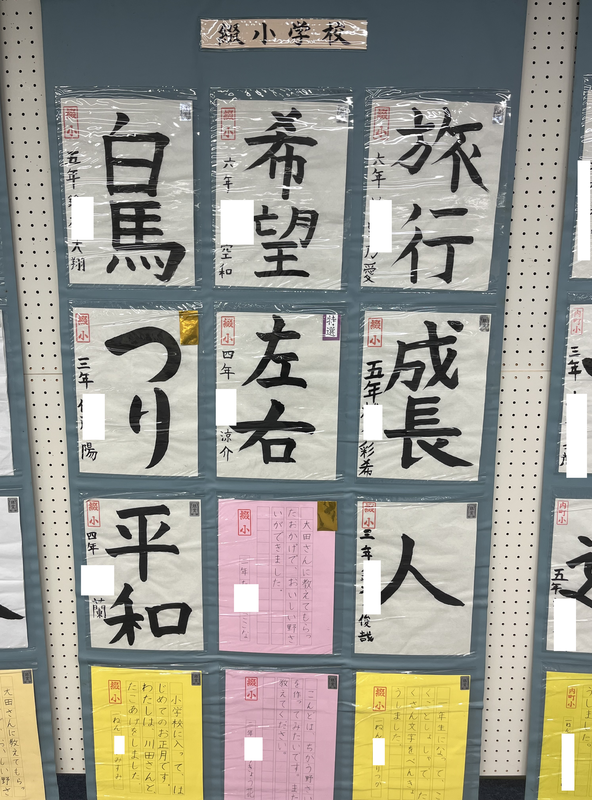 綴小学校
旅行
綴小
六年
愛
希望
綴小
六年
空和
白馬
綴小
五年
大翔
成長
綴小
五年
彩希
特選
左右
綴小
四年
涼介
つり
綴小
三年
陽
人
綴小
三年
俊哉
大田さんに教えてもらっ
たおかげで、おいしい野さ
いができました。
綴小
平和
綴小
四年
蘭
一年生になって、た
くさん文字をべんきょ
うしました。
綴小
こんどは、ちがう野さい
を作ってみたいです。また
教えてください。
綴小
小学校に入って、は
じめてのお正月です。
わたしは、川田さんと
たこあげをしました
綴小
みすみ
内町小
三年
内町小
五年
内町小
大田さんに教えてもら